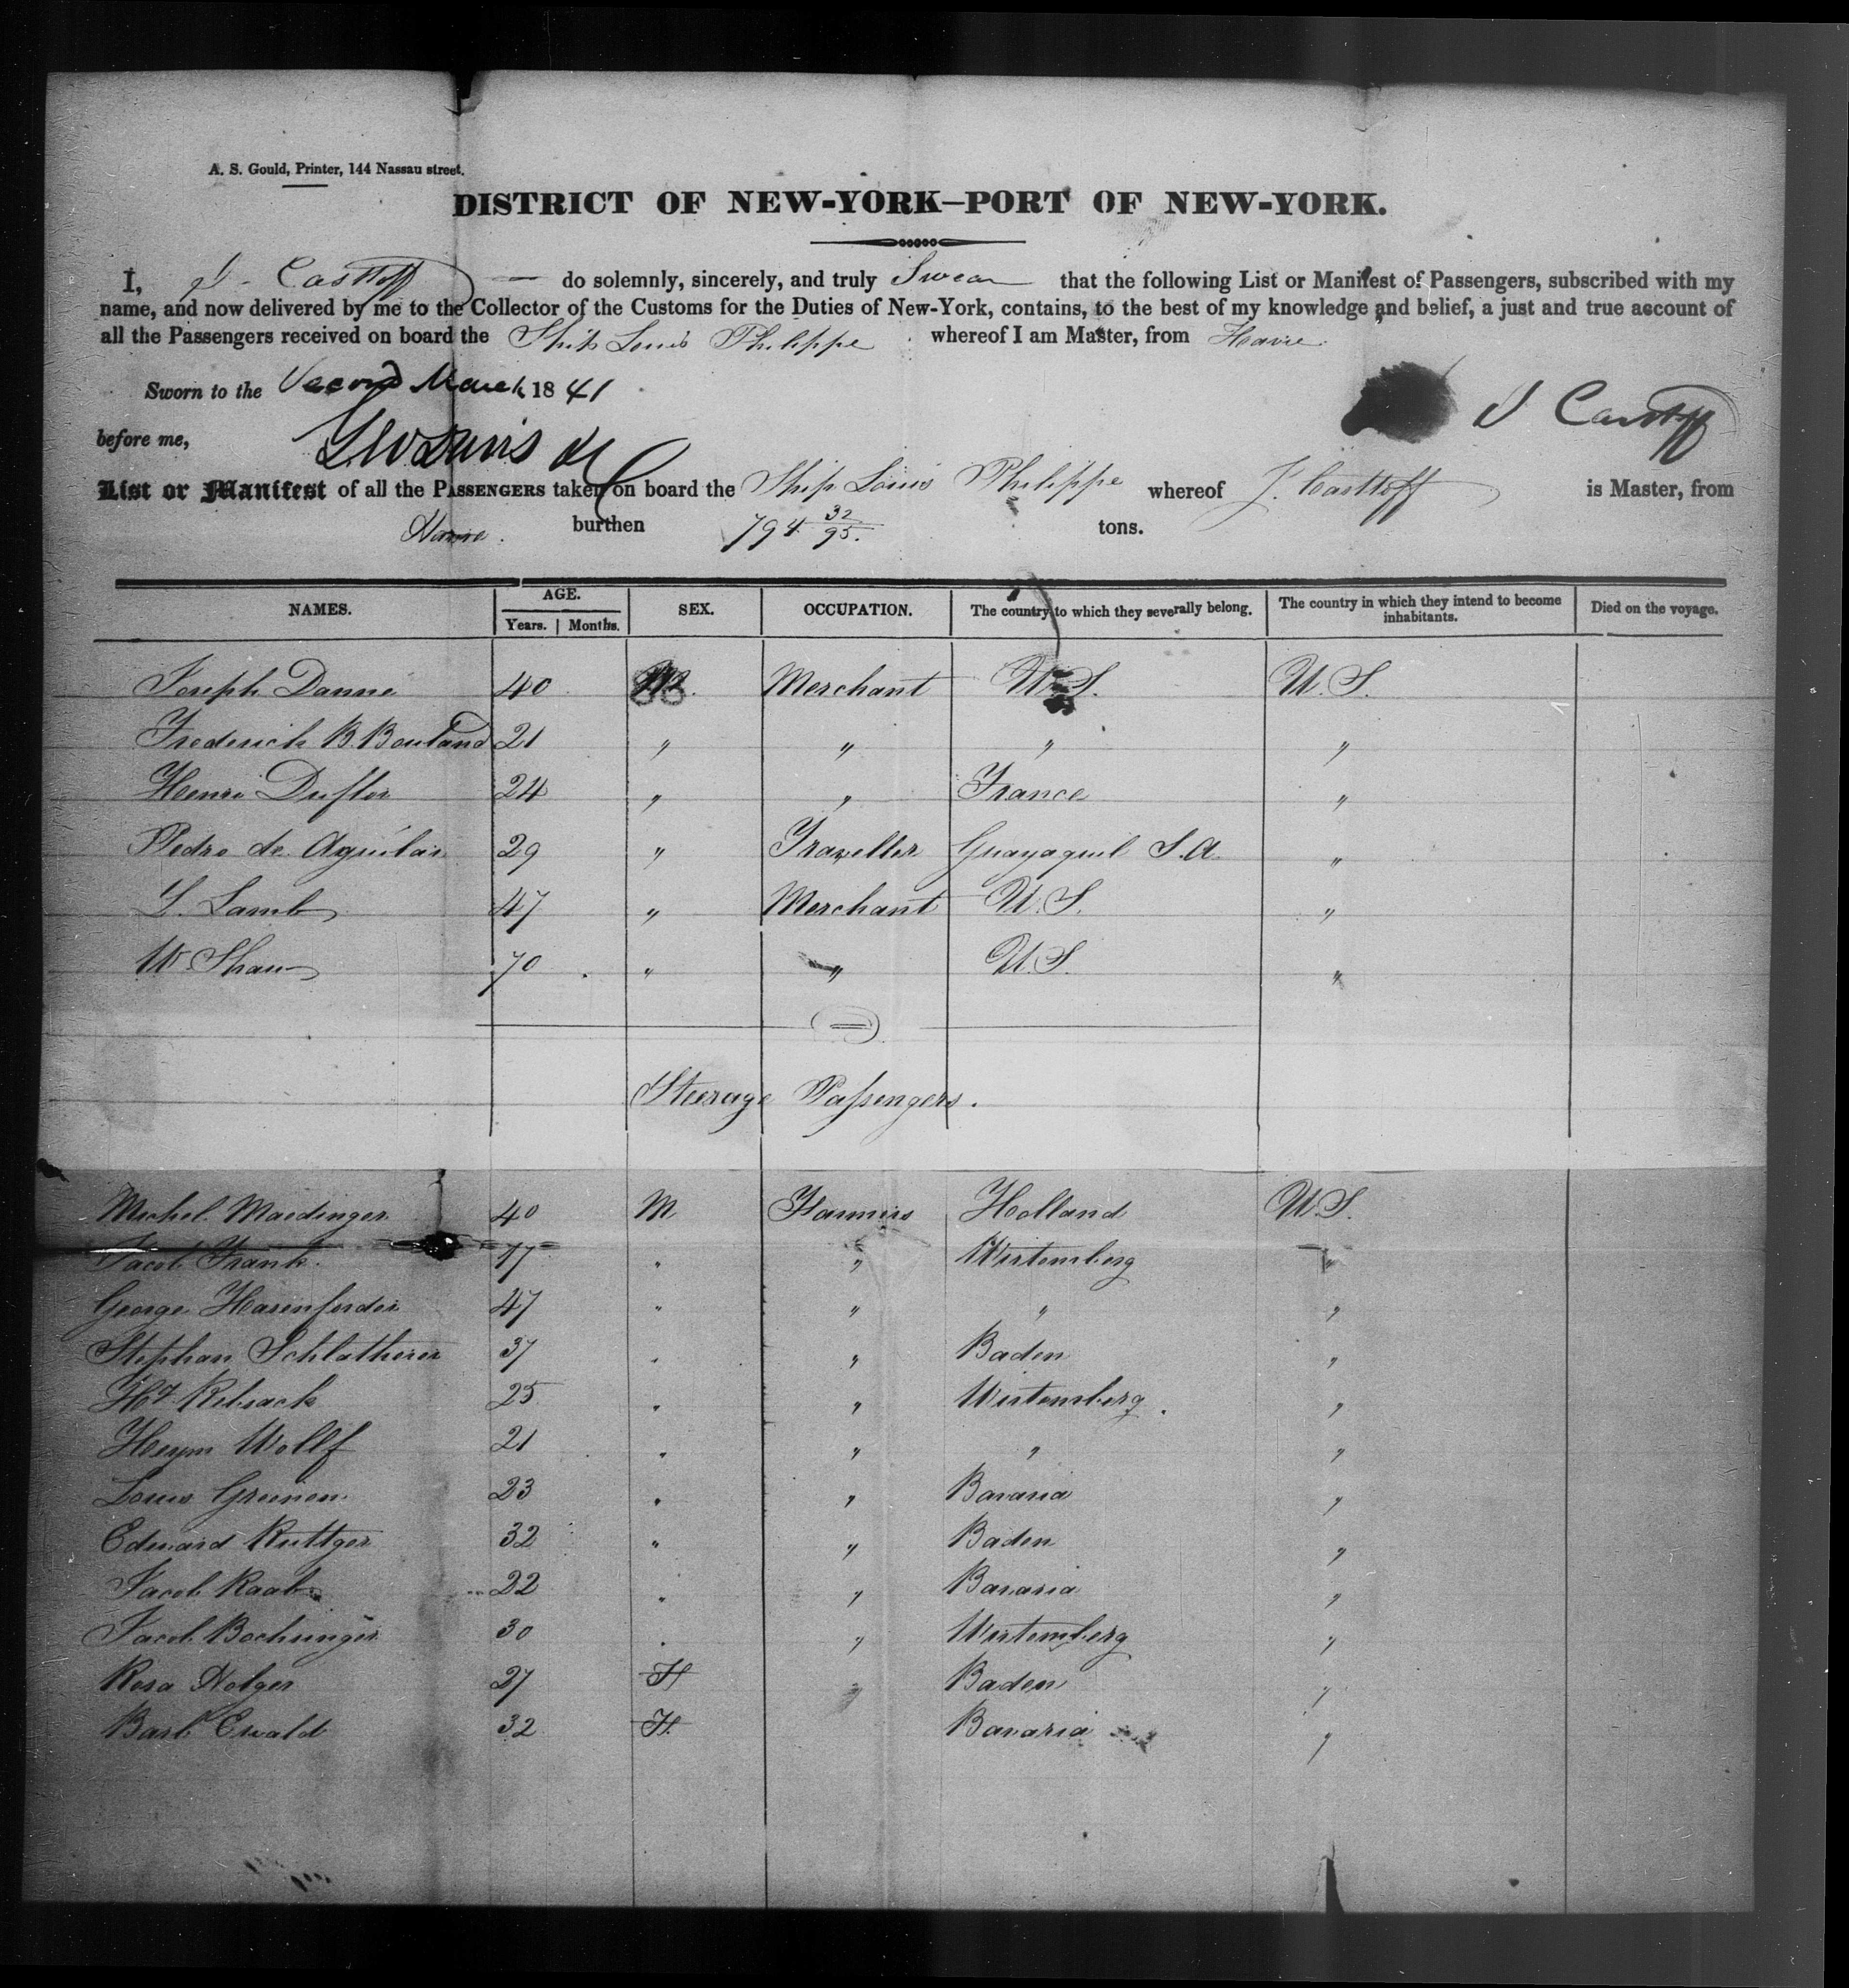 A. S. Gould, Printer, 144 Nassau street.
DISTRICT OF NEW-YORK–PORT OF NEW-YORK.
I, J. Casttoff do solemnly, sincerely, and truly Swear that the following List or Manifest of Passengers, subscribed with my
name, and now delivered by me to the Collector of the Customs for the Duties of New-York, contains, to the best of my knowledge and belief, a just and true account of
all the Passengers received on board the Ship Louis Philippe whereof I am Master, from Havre.
Sworn to the Second March 1841
J Casttoff
before me,
List or Manifest of all the PASSENGERS taken on board the Ship Louis Philippe whereof J. Casttoff is Master, from
Havre. burthen 794 32/95. tons.
NAMES. AGE. Years. Months. SEX. OCCUPATION. The country to which they severally belong. The country in which they intend to become inhabitants. Died on the voyage.
Joseph Danne 40 M. Merchant U.S. U.S.
Frederick B. Bouland 21 " " " "
Henri Duflor 24 " " France "
Pedro de Aguilar 29 " Traveller Guayaquil S.A. "
L. Lamb 47 " Merchant U.S. "
W. Shaw 70 " " U.S. "
Steerage Passengers.
Michel Maedinger 40 M Farmers Holland U.S.
Jacob Frank. 47 " " Wirtemberg "
George Hasenforder 47 " " " "
Stephan Schlatherer 37 " " Baden "
Hy. Rebsack 25 " " Wirtemberg. "
Heym Wollf 21 " " " "
Louis Greinen 23 " " Bavaria "
Edward Ruttger 32 " " Baden "
Jacob Raab 22 " " Bavaria "
Jacob Bochinger 30 " " Wirtemberg "
Rosa Nolger 27 F " Baden "
Barb Ewald 32 F. Bavaria "